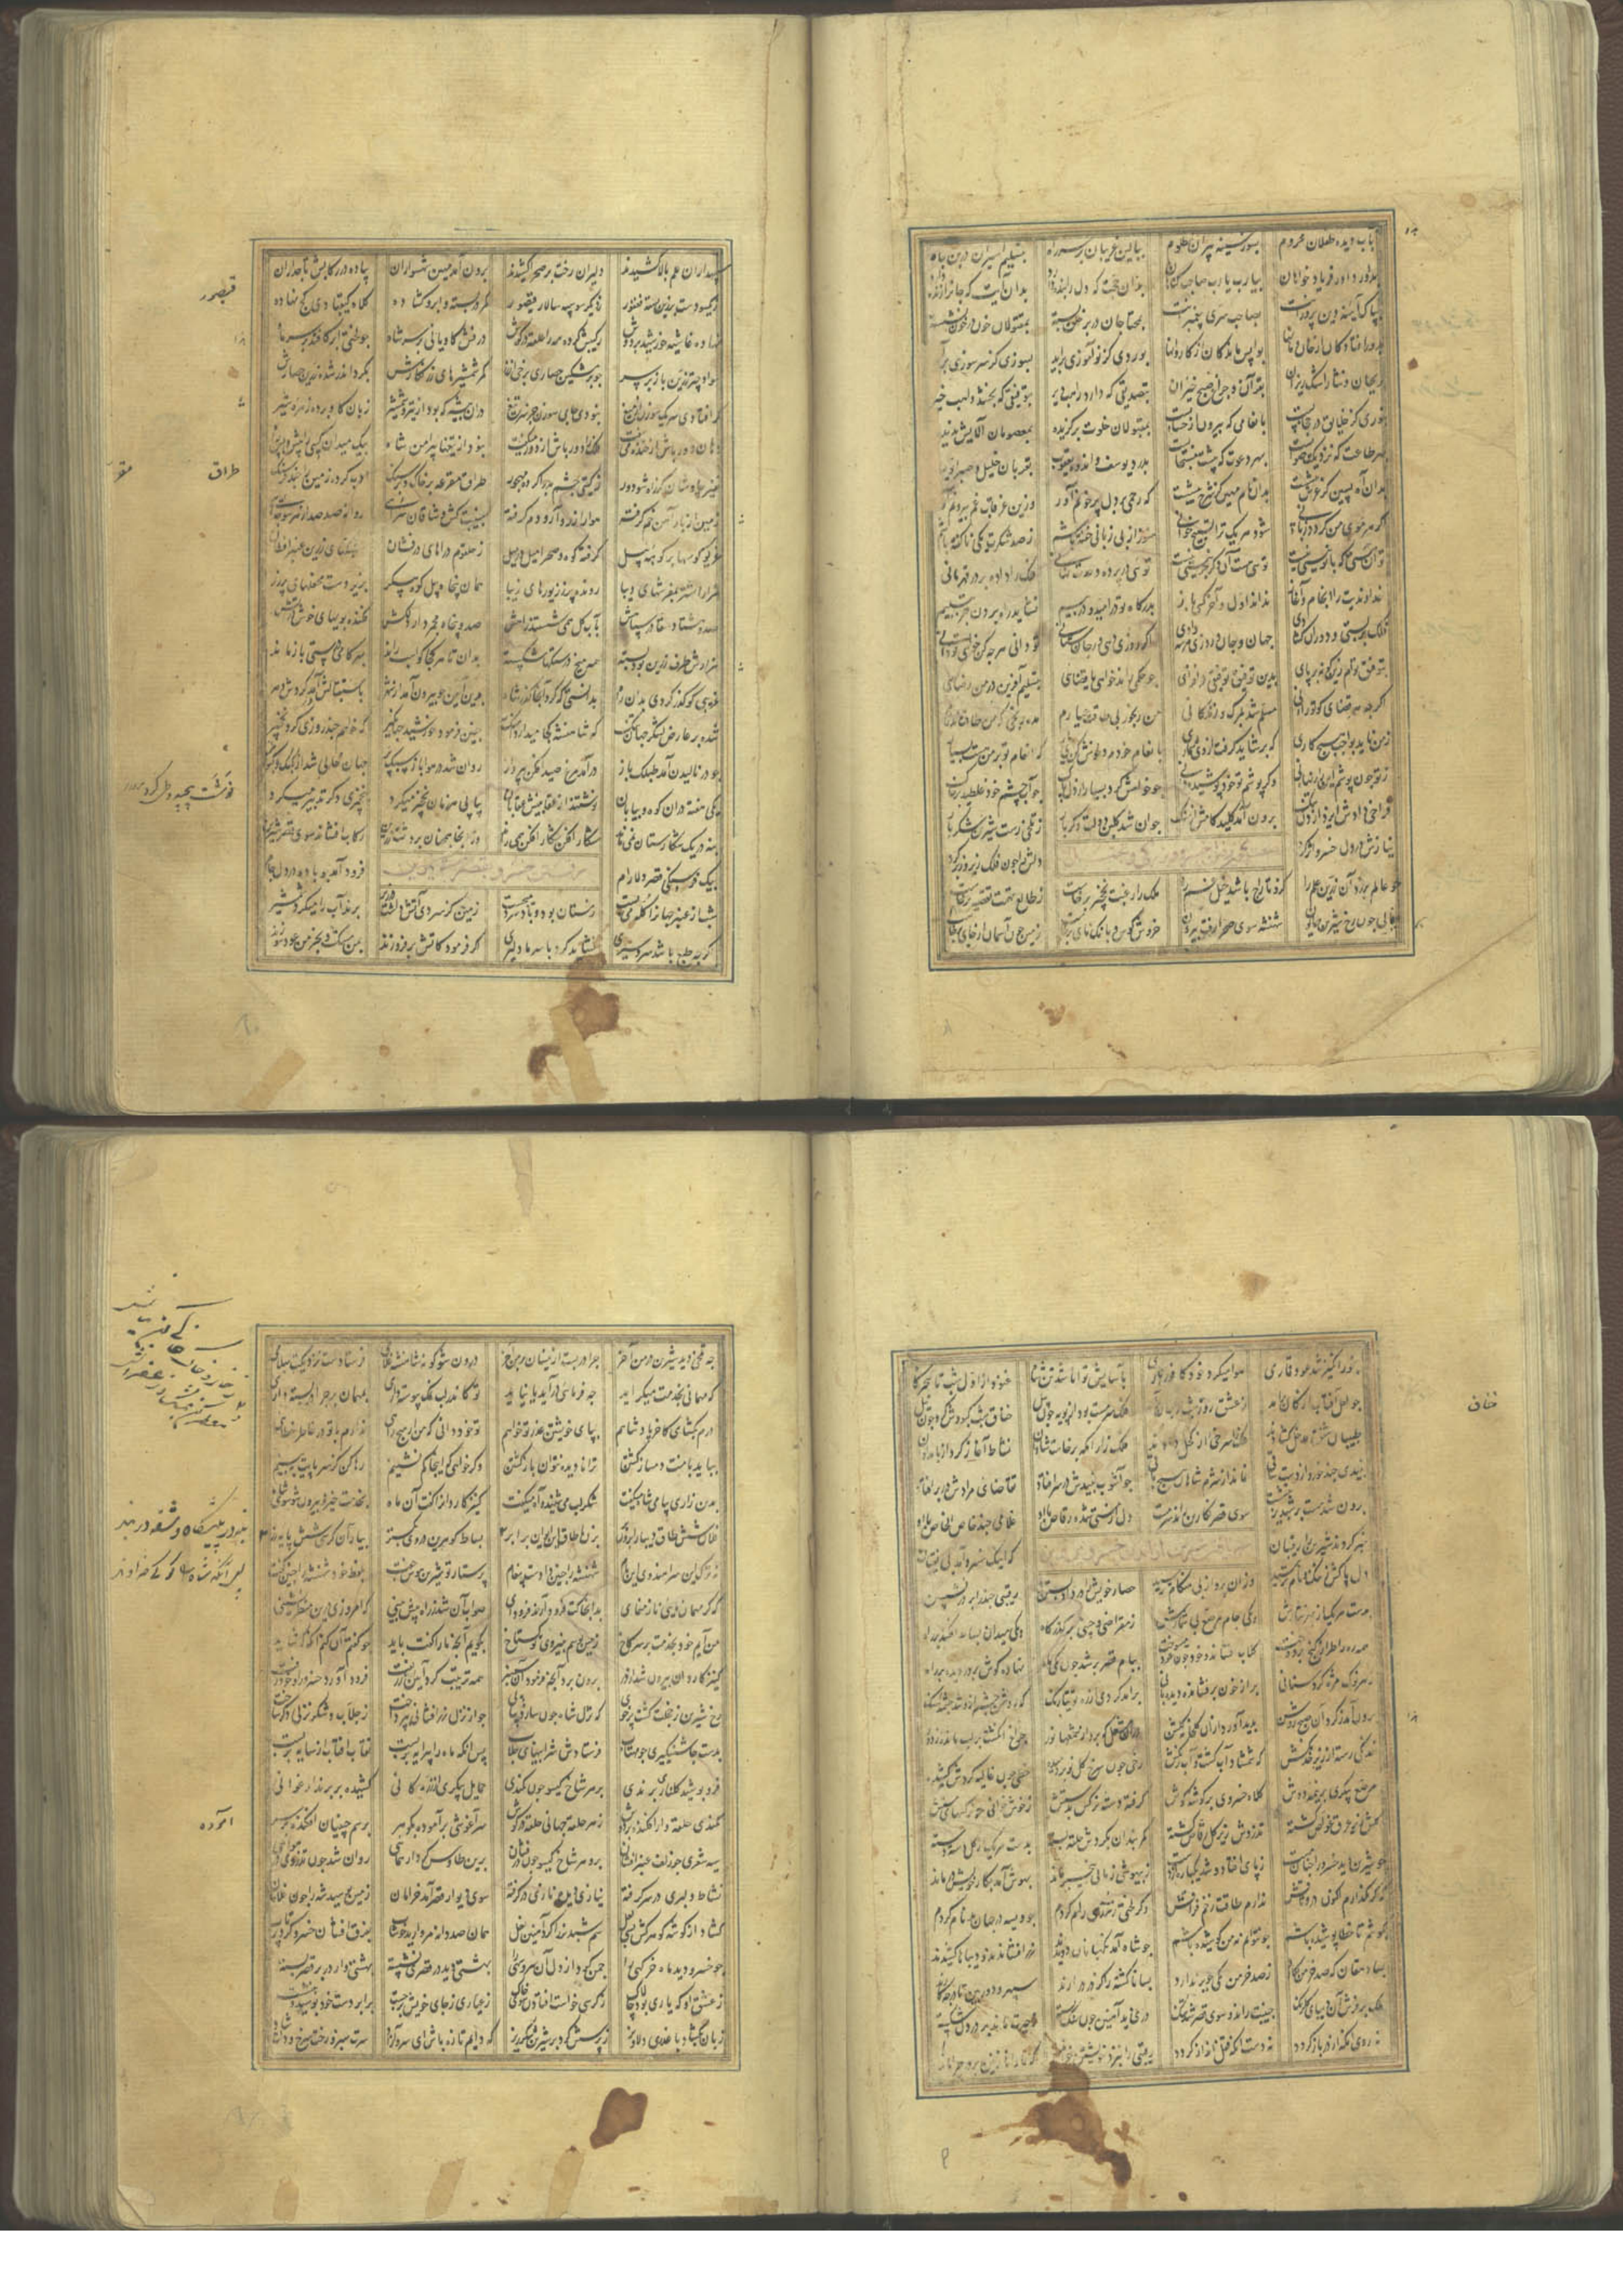 بآب دیده طفلان محروم بسوز سینه پیران مظلوم ببالین غریبان بر سر راه بتسلیم اسیران در بن چاه
بداور داور فریاد خواهان بیارب یارب صاحب گناهان بدان حجت که دل را بنده دارد بدان آیت که جانرا زنده دارد
بپاکی آینه دین پرورانت بصاحب سری پیغمبرانت بمحتاجان در بر خلق بسته بمقتولان خون در خون نشسته
بدور افتادگان از خان و مانها بواپس ماندگان از کاروانها بوردی کز نوآموزی برآید بسوزی کز سر سوزی برآید
بریحان و نثار اشک ریزان بقرآن و چراغ صبح خیزان بتصدیقی که دارد راهب دیر بتوفیقی که بخشد واهب خیر
بنوری کز خلایق در حجابست بانعامی که بیرون از حسابست بمقبولان خلوت برگزیده بمعصومان آلایش ندیده
بهر طاعت که نزدیکت صوابست بهر دعوت که پیشت مستجابست بدرد یوسف و اندوه یعقوب بقربان خلیل و صبر ایوب
بدان آه پسین کز عرش پیشست بدان نام مهین کز شرح بیشست که رحمی بر دل پر خونم آور وزین غرقاب غم بیرونم آور
اگر هر موی من گردد زبانی شود هر یک ترا تسبیح خوانی هنوز از بی زبانی خفته باشم ز صد شکرت یکی ناگفته باشم
توآن هستی که با تو نیستی نیست تویی هست آن دگر جز نیستی نیست تویی در پرده وحدت نهانی فلک را داده بر در قهرمانی
خداوندیت را انجام و آغاز نداند اول و آخر کسی باز بدرگاه تو در امید و در بیم نشاید راه بردن جز بتسلیم
فلک بر بستی و دوران گشادی جهان و جان و روزی هر سه دادی اگر روزی دهی ور جان ستانی تو دانی هر چه خواهی کن تو دانی
بتوفیق توام زین گونه برپای بدین توفیق توفیقی درافزای چو حکمی راند خواهی یا قضایی بتسلیم آفرین در من رضایی
اگر چه هر قضای کو تو رانی مسلم شد بمرگ و زندگانی من رنجور بی طاقت عیارم مده رنجی که من طاقت ندارم
ز من ناید بواجب هیچ کاری که بر شاید گرفت از وی شماری بانعام خودم دلخوش کن این بار که انعام تو بر من هست بسیار
ز تو چون پوشم این راز نهانی وگر پوشم تو خود پوشیده دانی چو خواهش کرد بسیار از دل پاک چو آب چشم خود غلطید بر خاک
فراخی دادش ایزد از دل تنگ برون آمد کلید کامش از سنگ جوان شد گلبن دولت دگر بار ز تلخی رست شیرین شکربار
نیازش در دل خسرو اثر کرد دلش را چون فلک زیر و زبر کرد
چو عالم برزد آن زرین علم را کزو تاراج باشد خیل غم را ملک را رغبت نخجیر برخاست ز طالع تهمت تقصیر برخاست
بفالی چون رخ شیرین همایون شهنشه سوی صحرا رفت بیرون خروش کوس و بانگ نای برخاست زمین چون آسمان از جای برخاست
سپهداران علم بالا کشیدند دلیران رخت بر صحرا کشیدند برون آمد مهین شهسواران پیاده در رکابش تاجداران
ز یکسو دست بر زین بسته فغفور ز دیگر سو سپه سالار قیصور کمر دربسته و ابرو گشاده کلاه کیقبادی کج نهاده
قیصور
نهاده غاشیه خورشید بر دوش رکیبش کرده مه را حلقه در گوش درفش کاویانی بر سر شاه چو لختی ابر کافتد بر سر ماه
سواد چتر زرین باز بر سر چو بر مشکین حصاری برجی از زر کمر شمشیرهای زرنگارش بگرد اندر شده زرین حصارش
گر افتادی سر یک سوزن از میغ نبودی جای سوزن جز سر تیغ در آن بیشه که بود از تیر و شمشیر زبان گاو برده زهره شیر
دهان دورباش از خنده میسفت فلک را دورباش از دور میگفت نبود از تیغها پیرامن شاه بیک میدان کسی را پیش و پس راه
نفیر چاوشان که راه شو دور ز گیتی چشم بد را کرده مهجور طراق مقرعه بر خاک و بر سنگ ادب کرده زمین را چند فرسنگ
طراق
زمین از بار آهن خم گرفته هوا را از روارو دم گرفته جنیبت کش وشاقان سرایی روانه صد صد از هر سو جدایی
غریو کوسها بر کوهه پیل گرفته کوه و صحرا میل در میل ز حلقوم دراهای درفشان مشکهای زرین عنبر افشان
هزار اشتر بمفرشهای دیبا رونده پر ز زیورهای زیبا همان پنجاه پیل کوه پیکر بزیر دست محفلهای پر زر
صد و هشتاد سقا در سپاهش بآب گل همی شستند راهش صد و پنجاه مجمردار دلکش فکنده بویهای خوش در آتش
هزارش طرف زرین بود بسته همه میخ درستکها شکسته بدان تا هر کجا کو اسب راند بهر کامی درستی باز ماند
غریبی کو گذر کردی بدان راه بدانستی که کرد آنجا گذر شاه بدین آیین چو بیرون آمد از شهر باستقبالش آمد گردش دهر
شده بر عارض لشکر جهان تنگ که شاهنشه کجا میدارد آهنگ چنین فرمود خورشید جهانگیر که خواهم چند روزی کرد نخجیر
چو در نالیدن آمد طبلک باز درآمد مرغ صید افکن بپرواز روان شد در هوا باز سبک پر جهان خالی شد از کبک و کبوتر
یکی هفته در آن کوه و بیابان نرستند از عقابینش عقابان پیاپی هر زمان نخجیر میکرد بنخجیری دگر تدبیر میکرد
بنه در یک شکارستان نمی ماند شکار افکن شکار افکن همی راند وز آنجا همچنان بر دشت رکاب افشاند سوی قصر شیرین
بیک فرسنگی قصر دلارام رفتن خسرو بقصر شیرین فرود آمد چو باده در دل جام
شب از عنبر جهانرا کله می بست زمستان بود و باد سرد می جست زمین کز سردی آتش داشت در زیر پرند آب را میکرد شمشیر
اگر چه جای باشد گرمسیری نشاید کرد با سرما دلیری ملک فرمود کاتش بر فروزند بمن بخرمن عود سوزند
بخور انگیز شد عود قماری هوا میکرد خود کافور باری بآسایش توانا شد تن شاه غنود از اول شب تا سحرگاه
چو لعل آفتاب از کان برآمد ز عشق روز شب را جان برآمد خناق شب کبودش کرد چون نیل
خناق
طبیبان شفق مدخل گشادند فلک را سرخی از اکحل گشادند ملک زآرامگه برخاست شادان نشاط آغاز کرد از بامدادان
نبیدی چند خورد از دست ساقی نماند از شرم شاهان هیچ باقی چو آشوب نبیدش در سر افتاد تقاضای مرادش در بر افتاد
برون شد مست بر شبدیز بنشست سوی قصر نگارین راند سرمست دل از مستی شده رقاص با او غلامی چند خاص الخاص با او
خبر کردند شیرین را رقیبان که اینک خسرو آمد بی نقیبان
دل پاکش ز ننگ و نام ترسید وزان پرواز بی هنگام ترسید حصار خویش را در داد بستن رقیبی چند را بر در نشستن
بدست هر یک از بهر نثارش یکی جام مرصع بی شمارش ز مقراضی و چینی بر گذرگاه یکی میدان بساط افکند بر راه
همه ره را طراز گنج بردوخت گلاب افشاند و خود چون عود میسوخت ببام قصر بر شد چون یکی ماه نهاده گوش بر در دیده بر راه
ز هر نوک مژه کرده سنانی بر از خون برفشانده دیده بانی برآمد گردی از ره توتیا رنگ که روشن چشم ازو شد چشمه سنگ
برون آمد ز گرد آن صبح روشن پدید آورد ازان گلزار گلشن دران مشعل که برد از شمعها نور چراغ انگشت بر لب مانده از دور
خدنگی رسته از زیر خدنگش که شمشاد آب گشت از آب و رنگش رخی چون سرخ گل نو بر دمیده خطی چون غالیه گردش کشیده
مرصع پیکری در نیمه دوش کلاه خسروی بر گوشه گوش گرفته دسته نرگس بدستش ز خوش خوابی چو نرگسهای مستش
گلش زیر عرق غواص گشته تذروش زیر گل رقاص گشته کمربندان بگردش حلقه بسته بدست هر یک از گل دسته دسته
چو شیرین دید خسرو را چنان مست ز پای افتاد و شد یکباره از دست ز بیهوشی زمانی بیخبر ماند بهوش آمد بکار خویش در ماند
که گر نگذارم اکنون در وثاقش ندارم طاقت زخم فراقش وگر لختی ز تندی رام گردم چو ویسه در جهان بدنام گردم
بکوشم تا خطا پوشیده باشم چو نتوانم نه من کوشیده باشم چو شاه آمد نگهبانان دویدند زر افشاندند و دیباها کشیدند
بسا دهقان که صد خرمن بکارد ز صد خرمن یکی جو بر ندارد بسا ناکشته را کز در درآرند سپهر و دور بین تا در چه کارند
ملک بر فرش دیباهای گلرنگ جنیبت راند و سوی قصر شد تنگ دری دید آهنین در سنگ بسته ز حیرت ماند بر در دل شکسته
نه روی آنکه از در باز گردد نه دست آنکه قفل انداز گردد رقیبی را بنزد خویشتن خواند که ما را نازنین بر در چرا ماند
چه تلخی دید شیرین در من آخر چرا دربست ازینسان در من آخر درون شو گو نه شاهنشه غلامی فرستادست نزدیکت سلامی
که مهمانی بخدمت میگراید چه فرمایی درآید یا نیاید تو کاندر لب نمک پیوسته داری بمهمان بر چرا در بسته داری
درم بگشای کاخر پادشاهم بپای خویشتن عذر تو خواهم تو خود دانی که من از هیچ رایی ندارم با تو در خاطر خطایی
بباید با منت دمساز گشتن ترا نادیده نتوان باز گشتن وگر خواهی که اینجا کم نشینم رها کن کز سر پایت ببینم
بدین زاری پیامی شاه میگفت شکرلب می شنید و آه میگفت کنیزی کاردان را گفت آن ماه بخدمت خیز و بیرون شو سوی شاه
فلان شش طاق دیبا را برون بر بزن با طاق این ایوان برابر بساط گوهرین در وی بگستر بیار آن کرسی شش پایه زر
نه ترک این سرا هندوی این بام شهنشه را چنین دادست پیغام پرستار تو شیرین هوس جفت بلفظ خود شهنشه را چنین گفت
که گر مهمان مایی ناز منمای بدانجا کت فرود آرند فرود آی صواب آن شد ز راه پیش بینی که امروزی درین منظر نشینی
من آیم خود بخدمت بر سر کاخ زمین بوسم بنیروی تو گستاخ بگویم آنچه ما را گفت باید چو گفتم آن کنم کو گفت شاید
کنیز کاردان بیرون شد از در برون برد آنچه فرمود آن سمنبر همه ترتیب کرد آیین زربفت فرود آورد خسرو را و خود رفت
رخ شیرین ز خجلت گشت پر خوی که نزل شاه چون سازد پیاپی چو از نزل زر افشانی بپرداخت ز جلاب و شکر نزلی دگر ساخت
بدست چاشنی گیری چو مهتاب فرستادش شرابهای جلاب پس آنگه ماه را پیرایه بربست نقاب آفتاب از سایه بربست
فرو پوشید گلناری پرندی برو هر شاخ گیسو چون کمندی حمایل پیکری از زر کانی کشیده بر پرند ارغوانی
کمندی حلقه وار افکنده بر دوش ز هر حلقه جهانی حلقه در گوش سرآغوشی برآموده بگوهر برسم چینیان افکنده بر سر
آموده
سیه شعری چو زلف عنبر افشان برو هر شاخ گیسو چون بدین طاوس کرداری همایی روان شد چون تذروی در هوایی
نشاط دلبری در سر گرفته نیازی دیده نازی در گرفته سوی دیوار قصر آمد خرامان زمین بوسید شه را چون غلامان
گشاد از گوش گوهر کش بسی لعل سم شبدیز را کرد آتشین نعل همان صد دانه مروارید خوشاب بفرق افشان خسرو کرد پرتاب
چو خسرو دید ماه خرگهی را چمن کرد از دل آن سرو سهی را بهشتی دید در قصری نشسته بهشتی وار در بر قصر بسته
ز عشق او که یاری بود چالاک ز کرسی خواست افتادن سوی خاک ز عیاری ز جای خویش برجست برابر دست خود بوسید و بنشست
زبان بگشاد با عذری دلاویز ز پرسش کرد بر شیرین شکرریز که دایم تازه باش ای سرو آزاد سرت سبز و رخت سرخ و دلت شاد